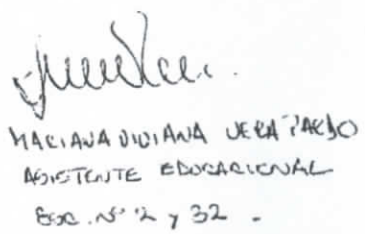 MARIANA VIVIANA VERA PARDO
ASISTENTE EDUCACIONAL
Esc. Nº 2 y 32 -